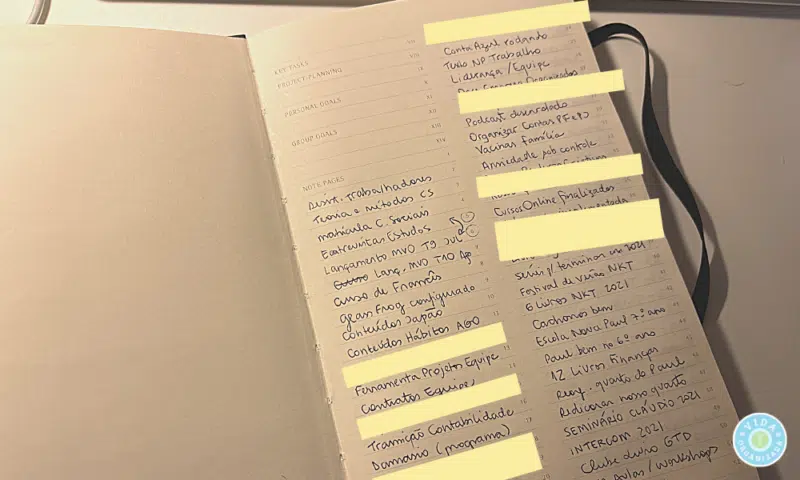 KEY TASKS
PROJECT PLANNING
PERSONAL GOALS
GROUP GOALS
NOTE PAGES
Desenv. Trabalhadores
Teoria e métodos CS
matrícula C. Sociais
Entrevistas Estudos
Lançamento MVO T9 Jul
Lanç. MVO T10 Ago
curso de Francês
gean Frog configurado
conteúdos Japão
Conteúdos Hábitos AGO
Ferramenta Projetos Equipe
Contratos Equipe
Transição Contabilidade
Damasio (programa)
Conta Azul rodando
Tudo NP Trabalho
Liderança / Equipe
Podcast desenrolado
Organizar Contas PF e PJ
Vacinas família
Ansiedade sob controle
Cursos Online finalizados
séries p/ terminar em 2021
Festival de Verão NKT
6 Livros NKT 2021
Cachorros bem
Escola Nova Paul 7º ano
Paul bem no 6º ano
12 Livros Finanças
Reorg. quarto do Paul
Redecorar nosso quarto
SEMINÁRIO CLÁUDIO 2021
INTERCOM 2021
Clube Livro GTD
Aulas / workshops
VIDA ORGANIZADA